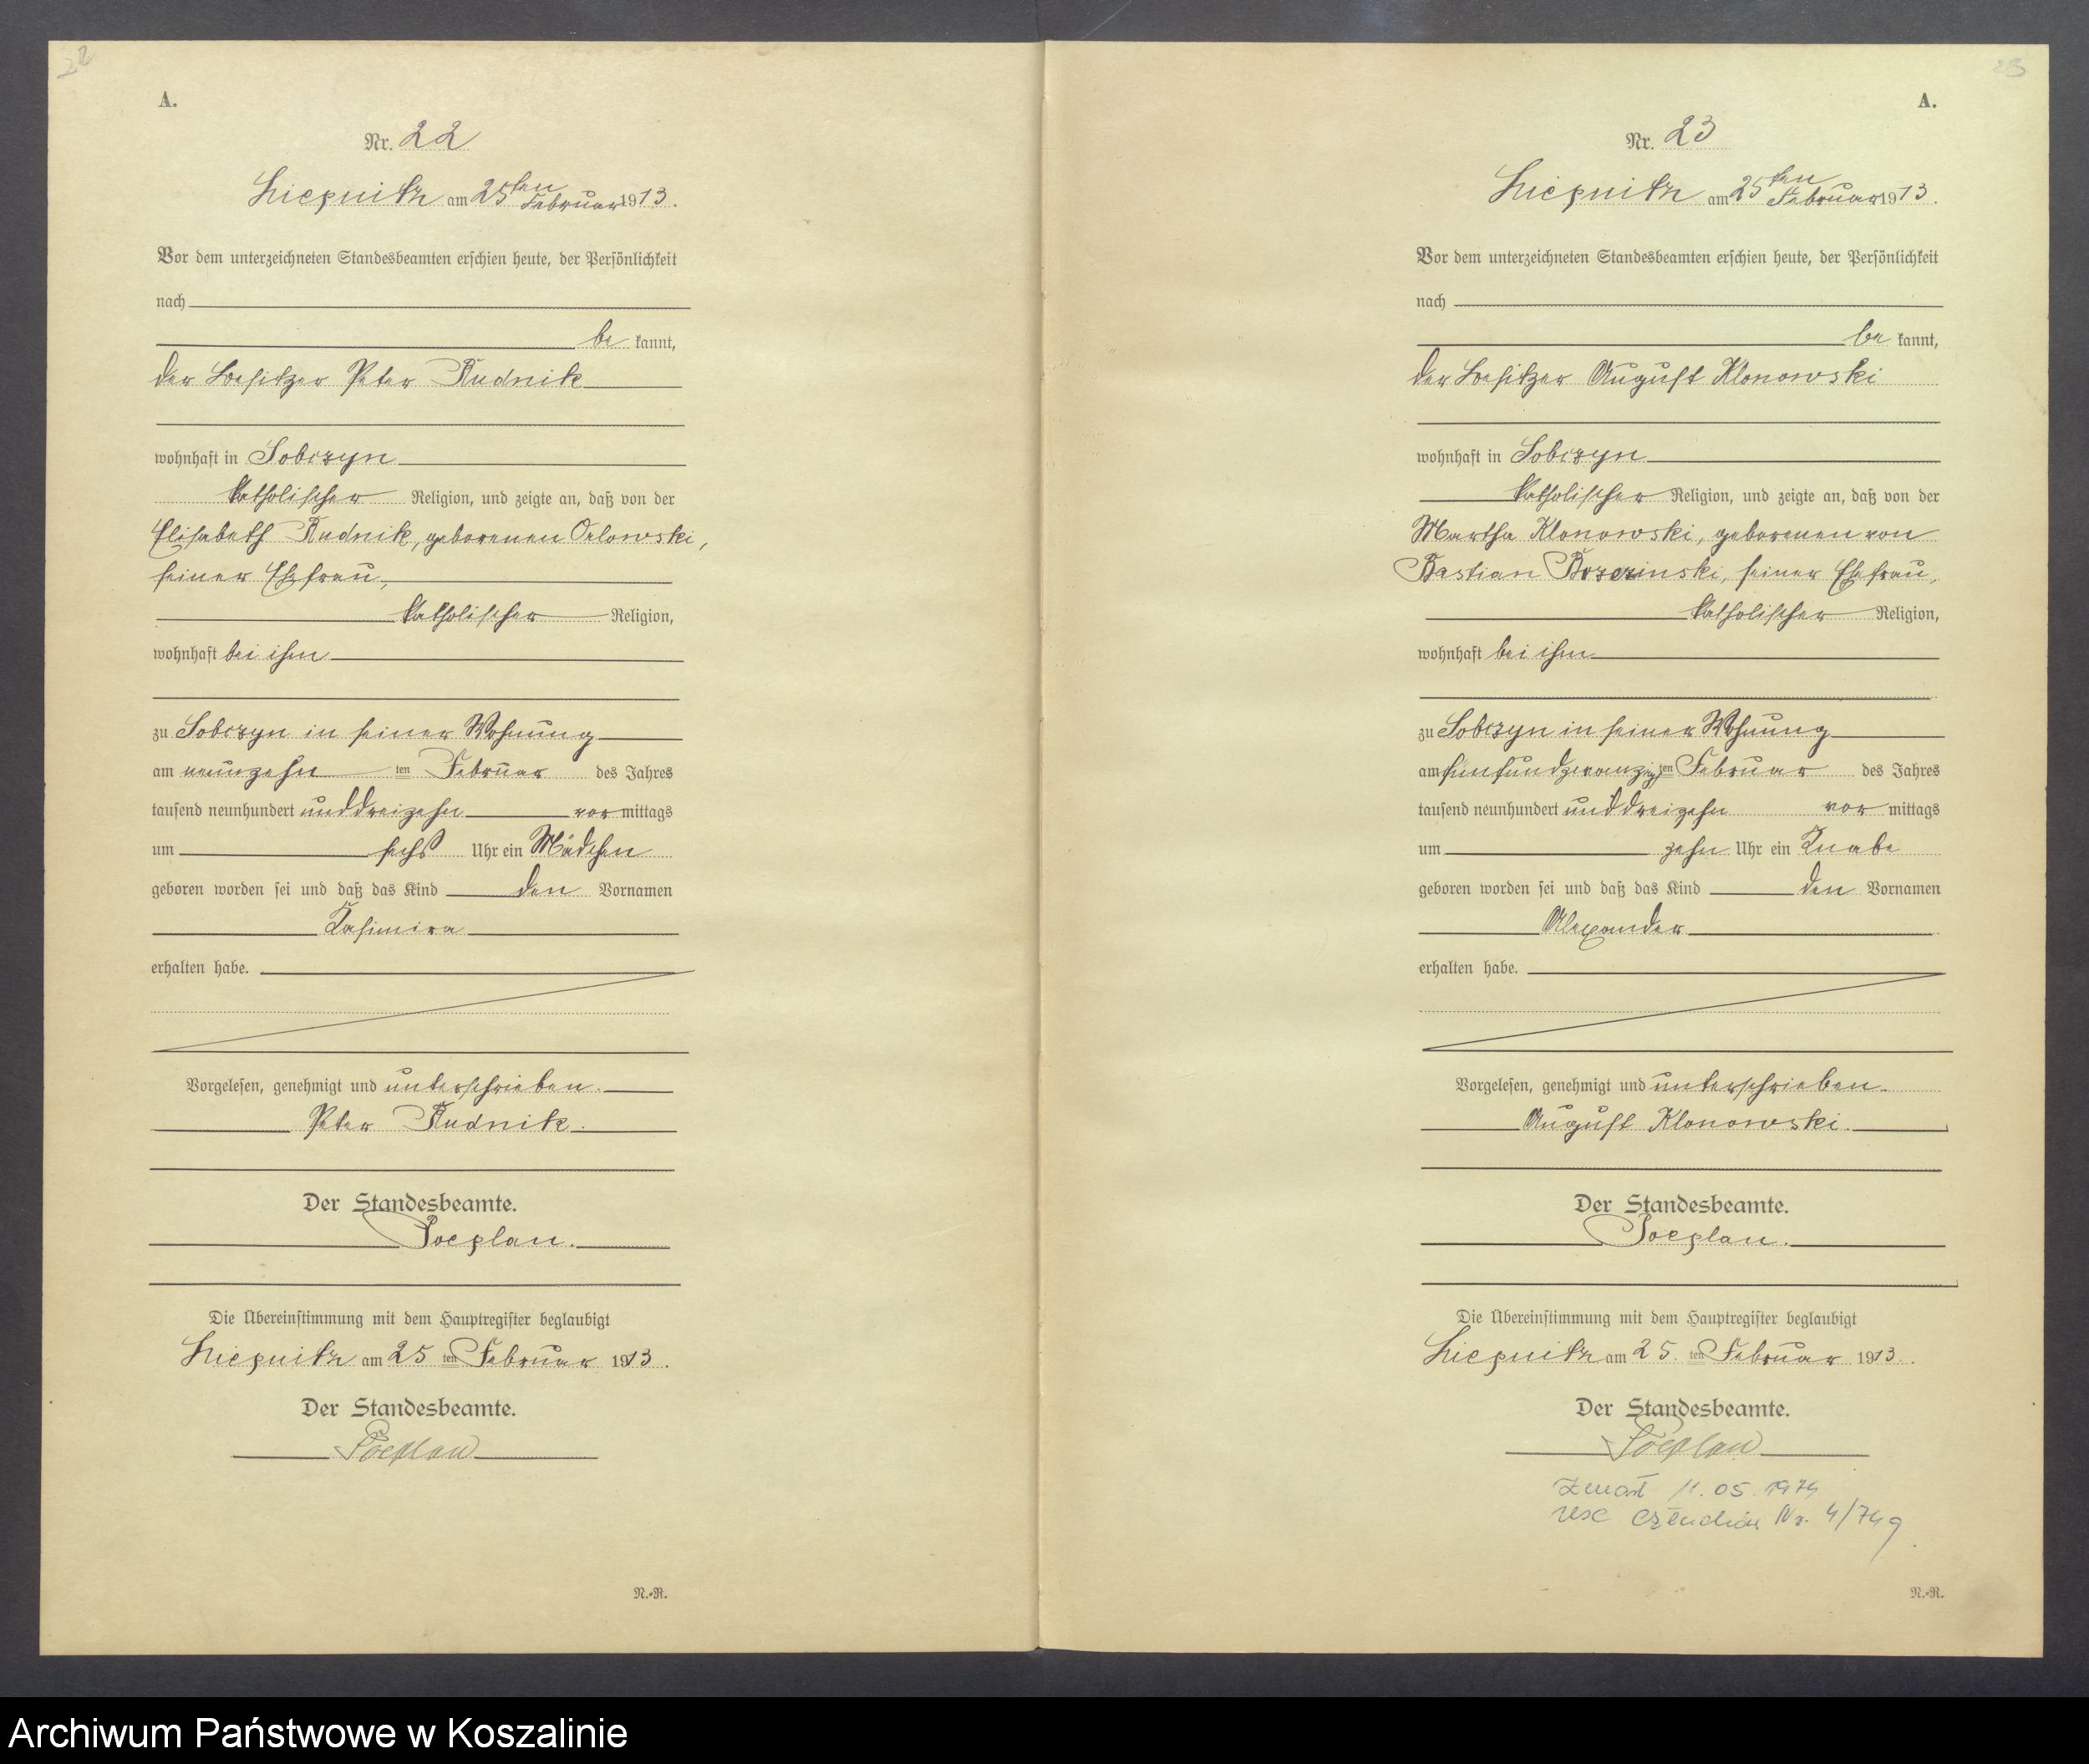 22
A.
Nr. 22
Liepnitz am 25ten Februar 1913.
Vor dem unterzeichneten Standesbeamten erschien heute, der Persönlichkeit
nach
be kannt,
der Besitzer Peter Rudnik
wohnhaft in Sobczyn
katholischer Religion, und zeigte an, daß von der
Elisabeth Rudnik, geborenen Orlowski,
seiner Ehefrau,
katholischer Religion,
wohnhaft bei ihm
zu Sobczyn in seiner Wohnung
am neunzehn ten Februar des Jahres
tausend neunhundert und dreizehn vor mittags
um sechs Uhr ein Mädchen
geboren worden sei und daß das Kind den Vornamen
Kasimira
erhalten habe.
Vorgelesen, genehmigt und unterschrieben.
Peter Rudnik.
Der Standesbeamte.
Poeplau.
Die Übereinstimmung mit dem Hauptregister beglaubigt
Liepnitz am 25 ten Februar 1913.
Der Standesbeamte.
Poeplau
N.-R.
23
A.
Nr. 23
Liepnitz am 25ten Februar 1913.
Vor dem unterzeichneten Standesbeamten erschien heute, der Persönlichkeit
nach
be kannt,
der Besitzer August Klonowski
wohnhaft in Sobczyn
katholischer Religion, und zeigte an, daß von der
Martha Klonowski, geborenen von
Bastian seiner Ehefrau,
katholischer Religion,
wohnhaft bei ihm
zu Sobczyn in seiner Wohnung
am fünfundzwanzig ten Februar des Jahres
tausend neunhundert und dreizehn vor mittags
um zehn Uhr ein Knabe
geboren worden sei und daß das Kind den Vornamen
Alexander
erhalten habe.
Vorgelesen, genehmigt und unterschrieben.
August Klonowski.
Der Standesbeamte.
Poeplau.
Die Übereinstimmung mit dem Hauptregister beglaubigt
Liepnitz am 25. ten Februar 1913.
Der Standesbeamte.
Poeplau
zmarł 11.05.1974
USC Nr. 4/74
N.-R.
Archiwum Państwowe w Koszalinie